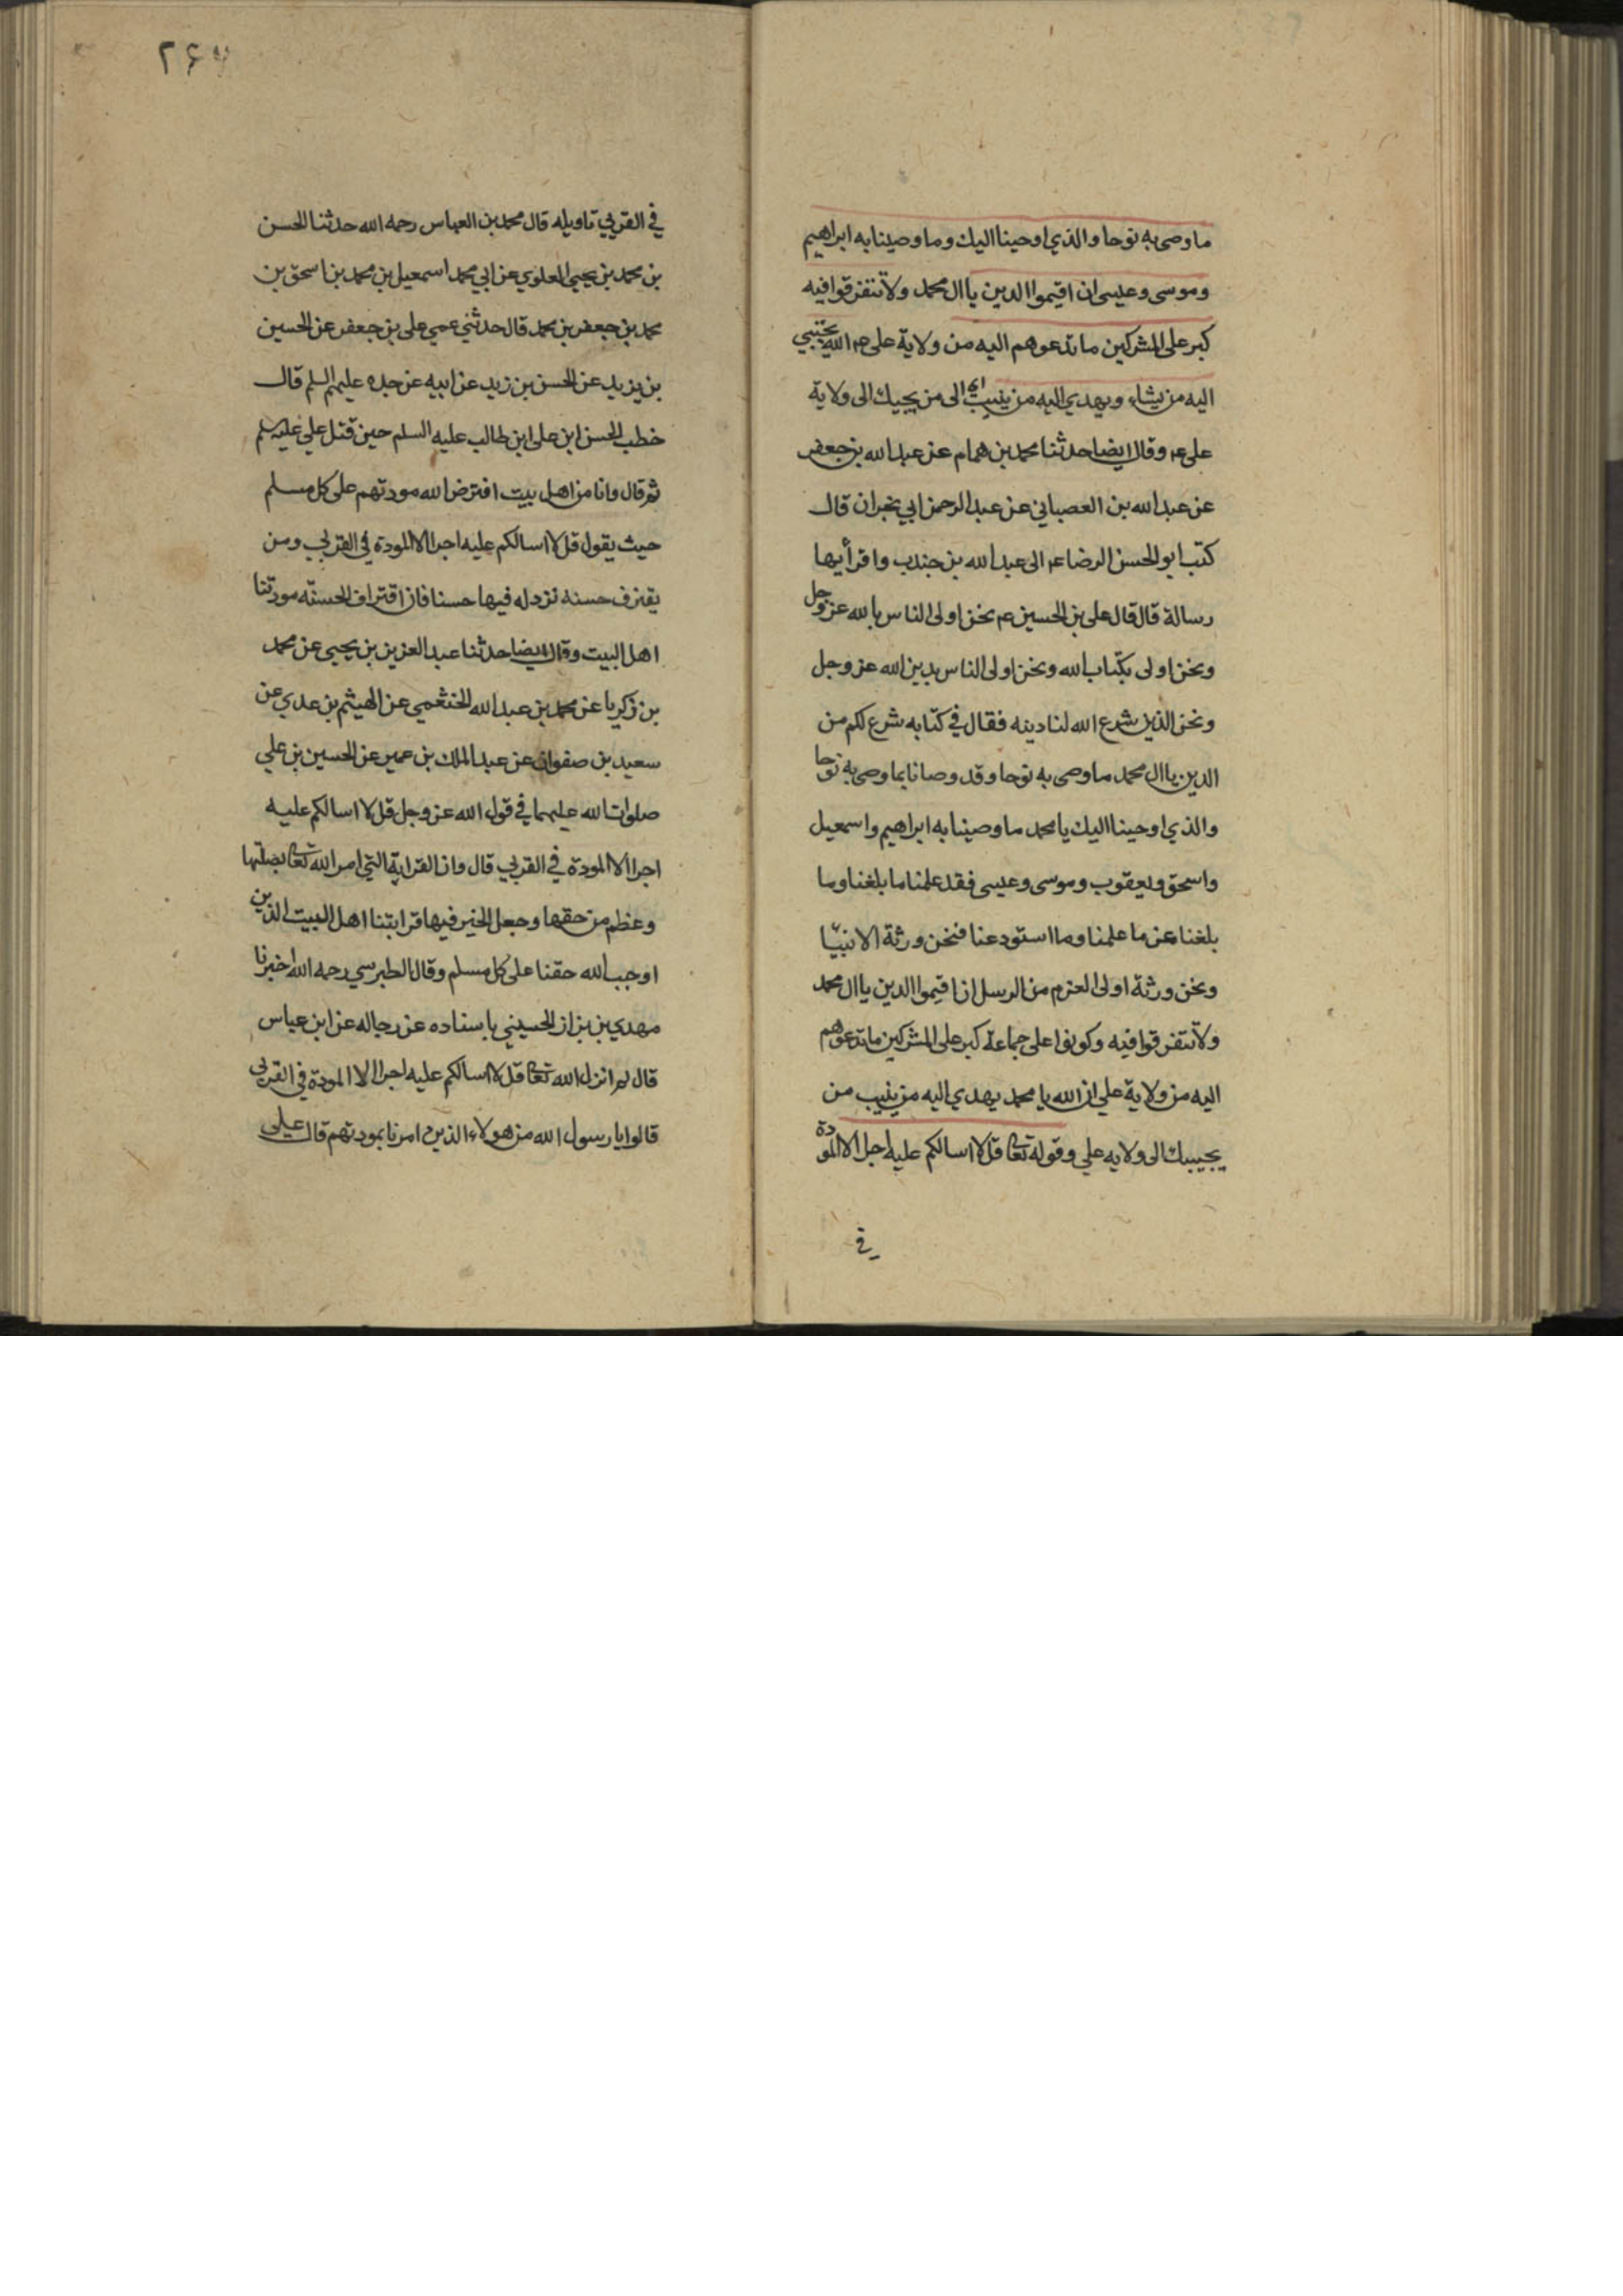 ما وصى به نوحا والذي اوحينا اليك وما وصينا به ابراهيم
وموسى وعيسى ان اقيموا الدين يا ال محمد ولا تتفرقوا فيه
كبر على المشركين ما تدعوهم اليه من ولاية علي ع الله يجتبي
اليه من يشاء ويهدي اليه من ينيب اي الى من يجيبك الى ولاية
علي ع وقال ايضا حدثنا محمد بن همام عن عبد الله بن جعفر
عن عبد الله بن العصباني عن عبد الرحمن ابي نجران قال
كتب ابو الحسن الرضا ع الى عبد الله بن جندب واقرأيها
رسالة قال قال علي بن الحسين ع نحن اولى الناس بالله عز وجل
ونحن اولى بكتاب الله ونحن اولى الناس بدين الله عز وجل
ونحن الذين شرع الله لنا دينه فقال في كتابه شرع لكم من
الدين يا ال محمد ما وصى به نوحا وقد وصانا بما وصى به نوحا
والذي اوحينا اليك يا محمد ما وصينا به ابراهيم واسمعيل
واسحق ويعقوب وموسى وعيسى فقد علمنا ما بلغنا وما
بلغنا عن ما علمنا وما استودعنا فنحن ورثة الانبيا
ونحن ورثة اولى العزم من الرسل ان اقيموا الدين يا ال محمد
ولا تتفرقوا فيه وكونوا على جماعة كبر على المشركين ما تدعوهم
اليه من ولاية علي ان الله يا محمد يهدي اليه من ينيب من
يجيبك الى ولايه علي وقوله تعا قل لا اسالكم عليه اجرا الا المودة
في
٢٤٧
في القربي تاويله قال محمد بن العباس رحمه الله حدثنا الحسن
بن محمد بن يحيى العلوي عن ابي محمد اسمعيل بن محمد بن اسحق بن
محمد بن جعفر بن محمد قال حدثني عمي علي بن جعفر عن الحسين
بن يزيد عن الحسن بن زيد عن ابيه عن جده عليهم السلم قال
خطب الحسن ابن على ابن طالب عليه السلم حين قتل علي عليه سلم
ثم قال وانا من اهل بيت افترض الله مودتهم على كل مسلم
حيث يقول قل لا اسالكم عليه اجرا الا المودة في القربي ومن
يقترف حسنه نزد له فيها حسنا فان اقتراف الحسنه مودتنا
اهل البيت وقال ايضا حدثنا عبد العزيز بن يحيى عن محمد
بن زكريا عن محمد بن عبد الله الخثعمي عن الهيثم بن عدي عن
سعيد بن صفوان عن عبد الملك بن عمير عن الحسين بن علي
صلوات الله عليهما في قول الله عز وجل قل لا اسالكم عليه
اجرا الا المودة في القربي قال وان القرابة التي امر الله تعا بصلتها
وعظم من حقها وجعل الخير فيها قرابتنا اهل البيت الذين
اوجب الله حقنا على كل مسلم وقال الطبرسي رحمه الله اخبرنا
مهدي بن نزار الحسيني باسناده عن رجاله عن ابن عباس
قال لم انزل الله تعا قل لا اسالكم عليه اجرا الا المودة في القربي
قالوا يا رسول الله من هولاء الذين امرنا بمودتهم قال علي